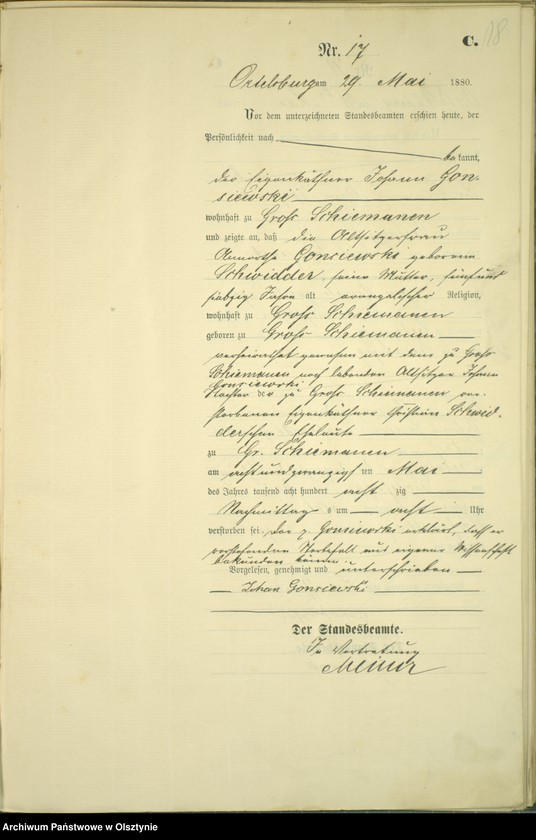 C. 18
Nr. 17
Ortelsburg am 29. Mai 1880.
Vor dem unterzeichneten Standesbeamten erschien heute, der
Persönlichkeit nach
bekannt,
der Eigenkäthner Johann Gon-
siewski
wohnhaft zu Groß Schiemanen
und zeigte an, daß die Altsitzerfrau
Gonsiewski geborene
Schwidder, seine Mutter, fünfund
siebzig Jahre alt evangelischer Religion,
wohnhaft zu Groß Schiemanen
geboren zu Groß Schiemanen
verheirathet gewesen mit dem zu Groß
Schiemanen noch lebenden Altsitzer Johann
Gonsiewski
Tochter der zu Groß Schiemanen ver-
storbenen Eigenkäthner Christian Schwid-
derschen Eheleute
zu Gr. Schiemanen
am achtundzwanzigsten Mai
des Jahres tausend acht hundert achtzig
Nachmittags um acht Uhr
verstorben sei. Der p. Gonsiewski erklärt, daß er
vorstehenden Sterbefall aus eigener Wissenschaft
bekunden könne.
Vorgelesen, genehmigt und unterschrieben
Johan Gonsiewski
Der Standesbeamte.
In Vertretung
Archiwum Państwowe w Olsztynie